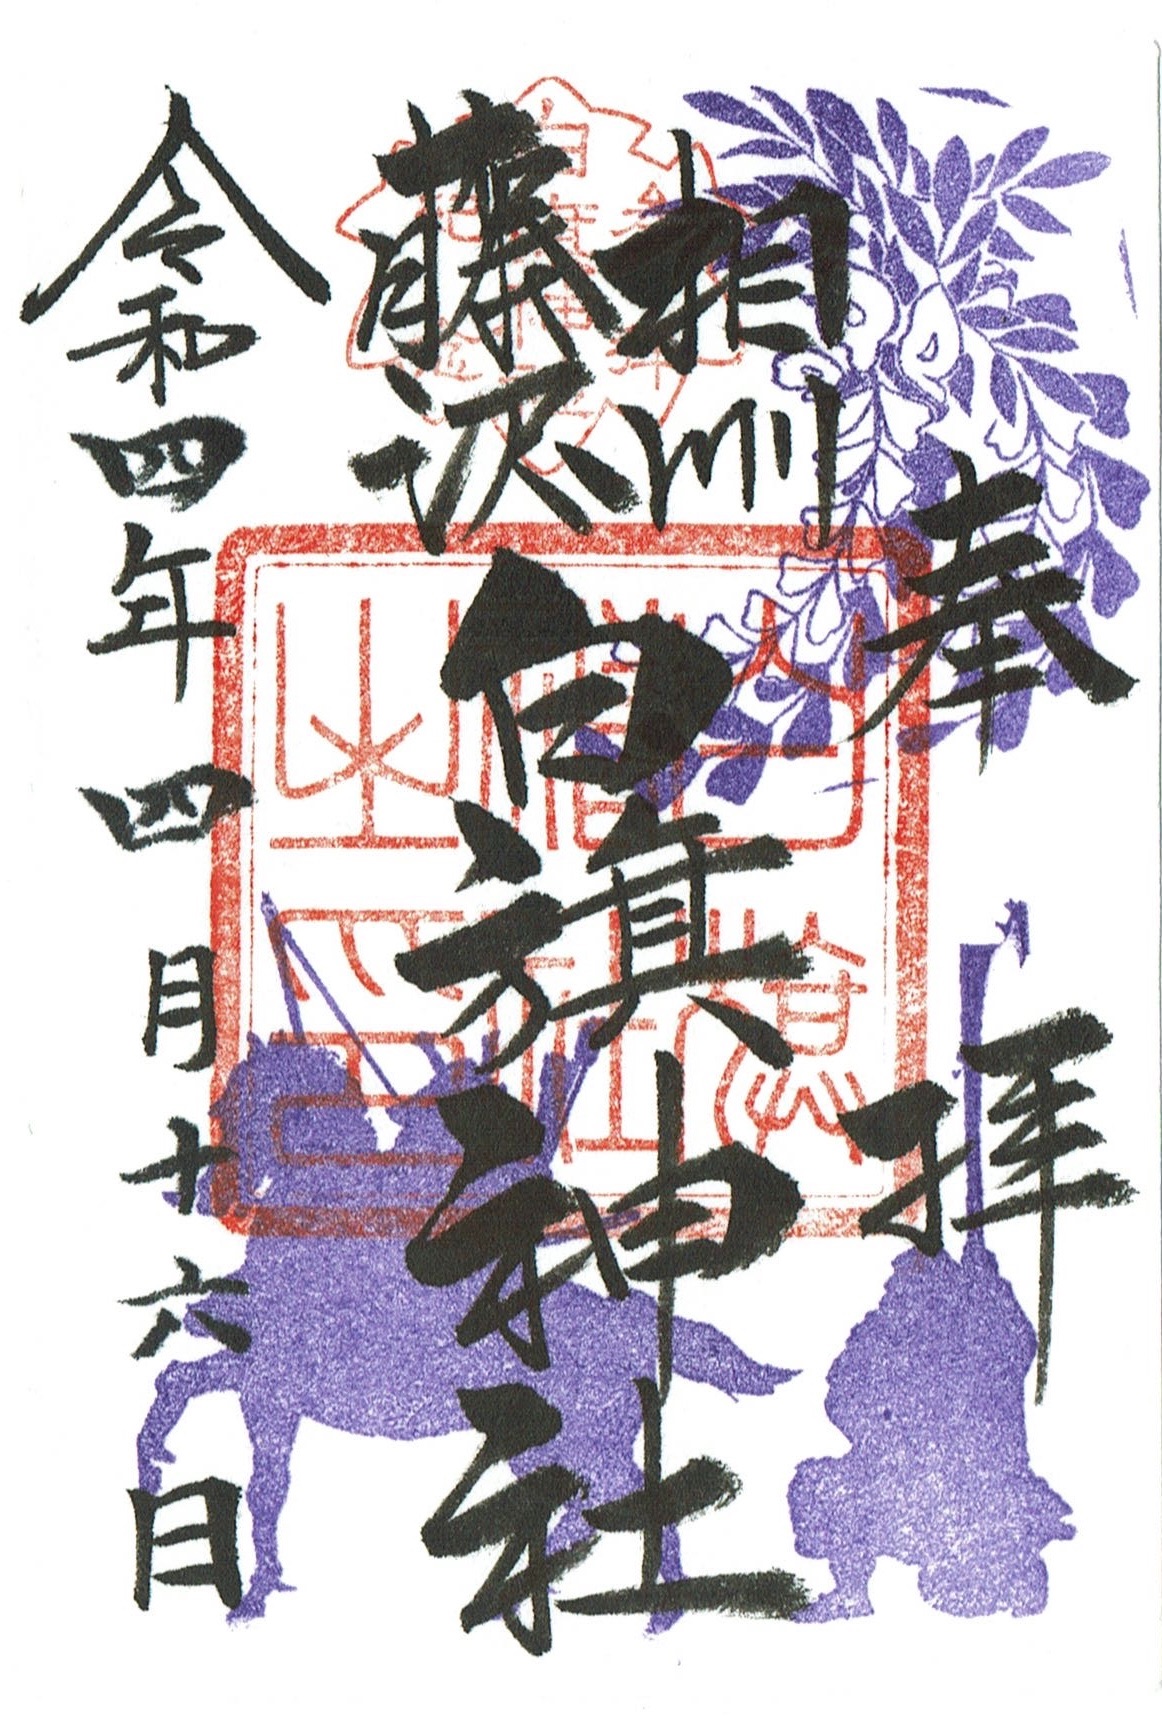 奉拝
相州
藤沢
白旗神社
令和四年四月廿六日